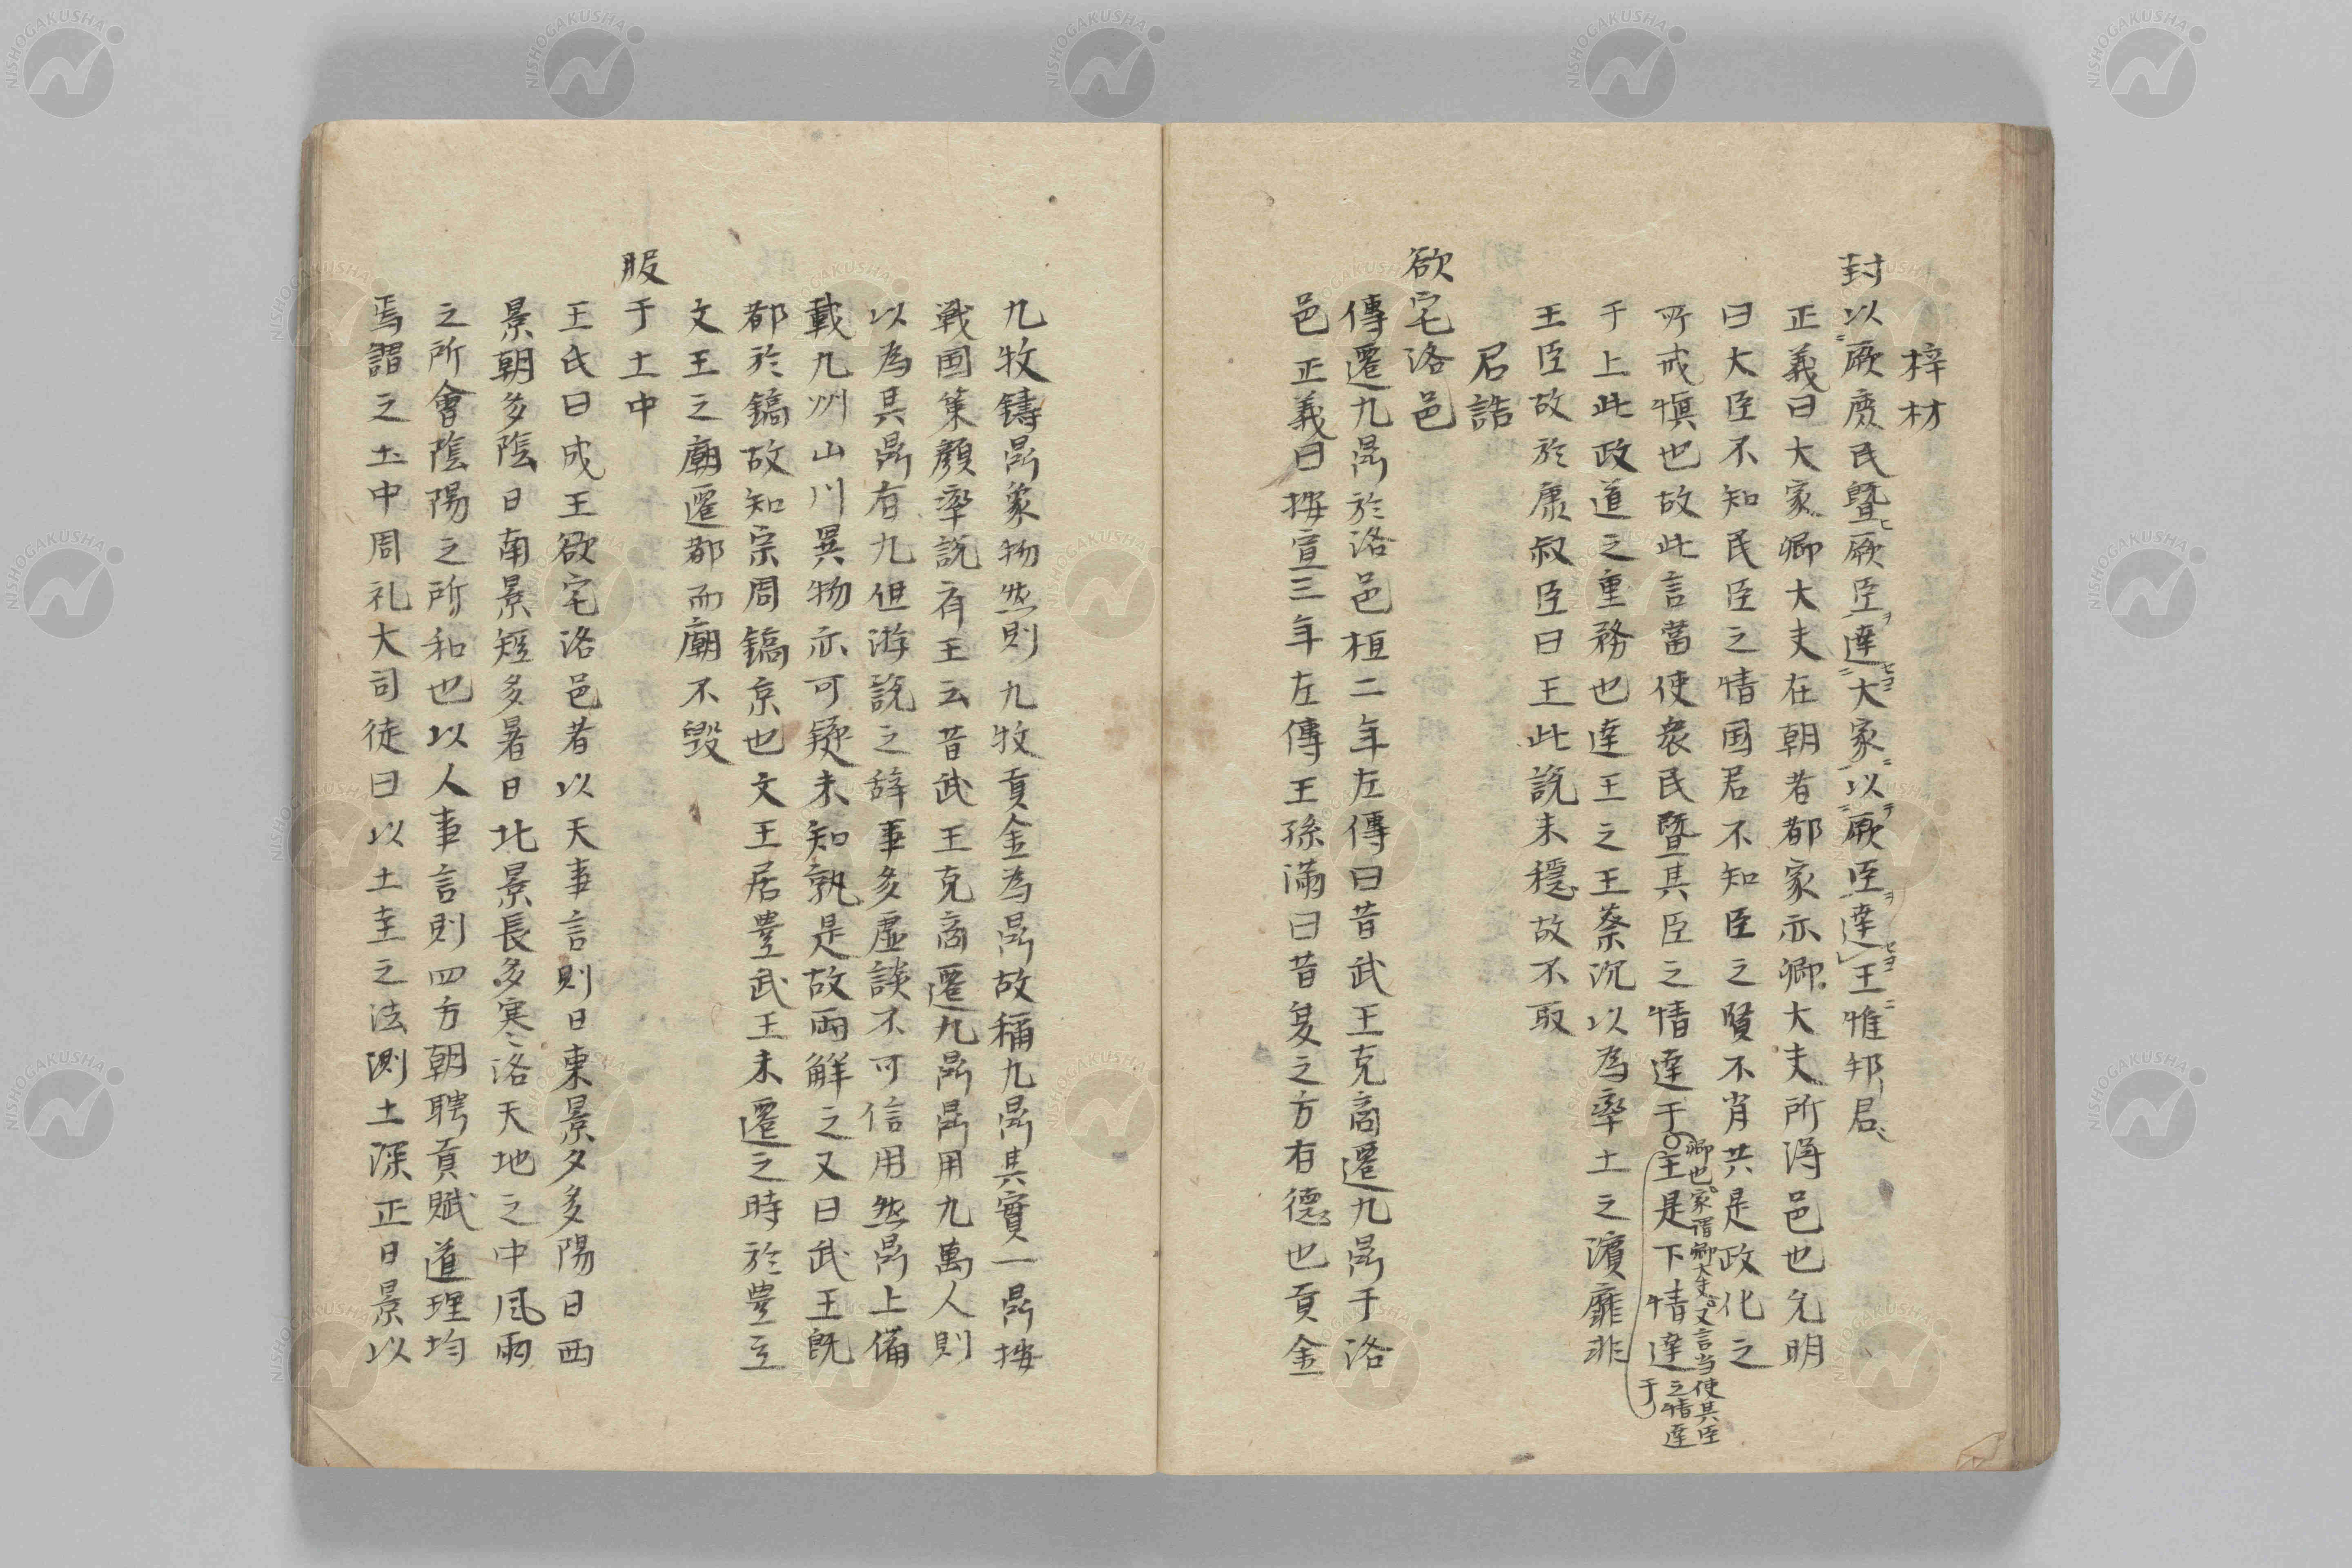 梓材
封以厥庶民曁厥臣達大家以厥臣達王惟邦君
正義曰大家卿大夫在朝者都家亦卿大夫所得邑也允明
曰大臣不知民臣之情国君不知臣之賢不肖共是政化之
所戒慎也故此言當使衆民曁其臣之情達于
卿也家謂卿大夫又言当使其臣之情達于
王是下情達
于上此政道之重務也達王之王蔡沉以為率土之濱靡非
王臣故於康叔臣曰王此説未穏故不取
君誥
欲宅洛邑
傳遷九鼎於洛邑桓二年左傳曰昔武王克商遷九鼎于洛
邑正義曰按宣三年左傳王孫滿曰昔夏之方有德也貢金
九牧鋳鼎象物然則九牧貢金為鼎故稱九鼎其實一鼎按
戦国策顏率説有王云昔武王克商遷九鼎鼎用九萬人則
以為其鼎有九但游説之辞事多虚談不可信用然鼎上備
載九州山川異物亦可疑未知孰是故両解之又曰武王既
都於鎬故知宗周鎬京也文王居豊武王未遷之時於豊立
文王之廟遷都而廟不毀
服于土中
王氏曰成王欲宅洛邑者以天事言則日東景夕多陽日西
景朝多陰日南景短多暑日北景長多寒洛天地之中風雨
之所會陰陽之所和也以人事言則四方朝聘貢賦道理均
焉謂之土中周礼大司徒曰以土圭之法測土深正日景以
NISHOGAKUSHA